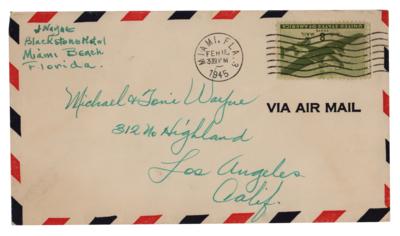 J Wayne
Blackstone Hotel
Miami Beach
Florida.
MIAMI, FLA. 3
FEB
PM
1945
UNITED STATES OF AMERICA
VIA AIR MAIL
Michael & Toni Wayne
312 No Highland
Los Angeles
Calif.